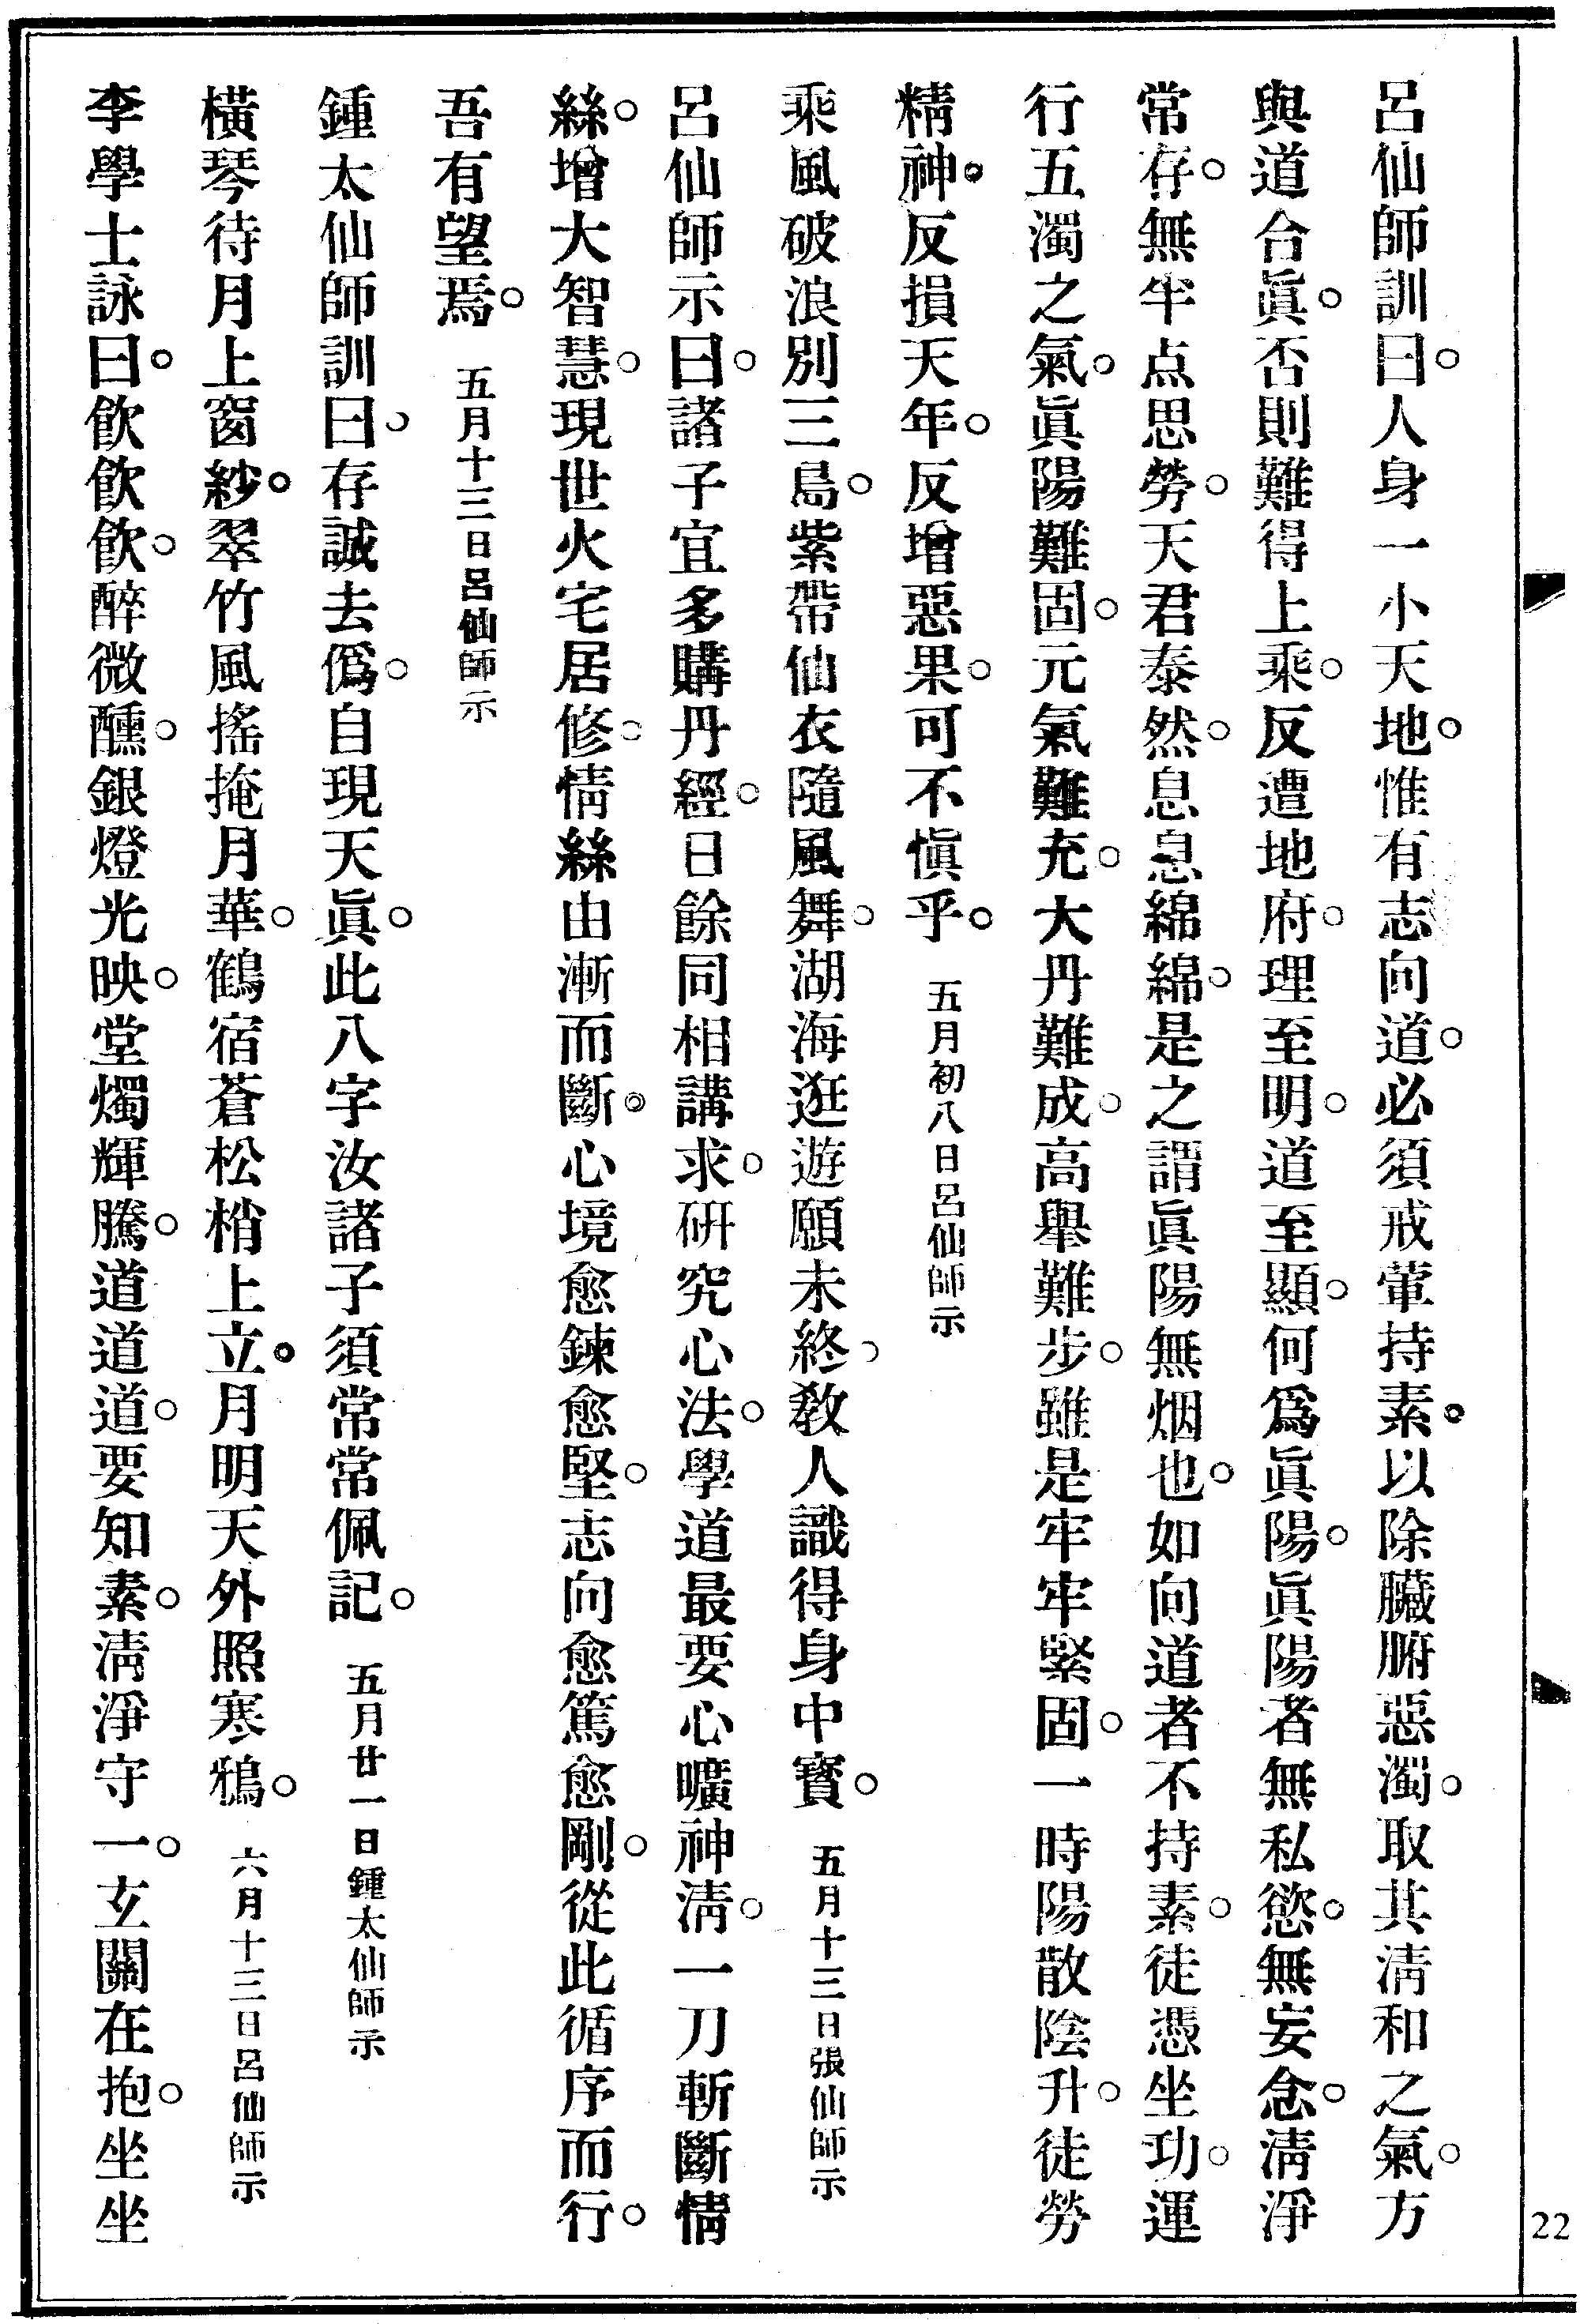 呂仙師訓曰。人身一小天地。惟有志向道。必須戒葷持素。以除臟腑惡濁。取其淸和之氣。方
與道合眞。否則難得上乘。反遭地府。理至明。道至顯。何爲眞陽。眞陽者無私慾。無妄念。淸淨
常存。無半点思勞。天君泰然。息息綿綿。是之謂眞陽無烟也。如向道者不持素。徒憑坐功。運
行五濁之氣。眞陽難固。元氣難充。大丹難成。高舉難步。雖是牢牢緊固。一時陽散陰升。徒勞
精神。反損天年。反增惡果。可不愼乎。 五月初八日呂仙師示
乘風破浪別三島。紫帶仙衣隨風舞。湖海逛遊願未終。敎人識得身中寶。 五月十三日張仙師示
呂仙師示曰。諸子宜多購丹經。日餘同相講求。硏究心法。學道最要心曠神淸。一刀斬斷情
絲。增大智慧。現世火宅居修。情絲由漸而斷。心境愈鍊愈堅。志向愈篤愈剛。從此循序而行。
吾有望焉。 五月十三日呂仙師示
鍾太仙師訓曰。存誠去僞。自現天眞。此八字汝諸子須常常佩記。 五月廿一日鍾太仙師示
橫琴待月上窗紗。翠竹風搖掩月華。鶴宿蒼松梢上立。月明天外照寒鴉。 六月十三日呂仙師示
李學士詠曰。飮飮飮。醉微醺。銀燈光映。堂燭輝騰。道道道。要知素。淸淨守一。玄關在抱。坐坐
22